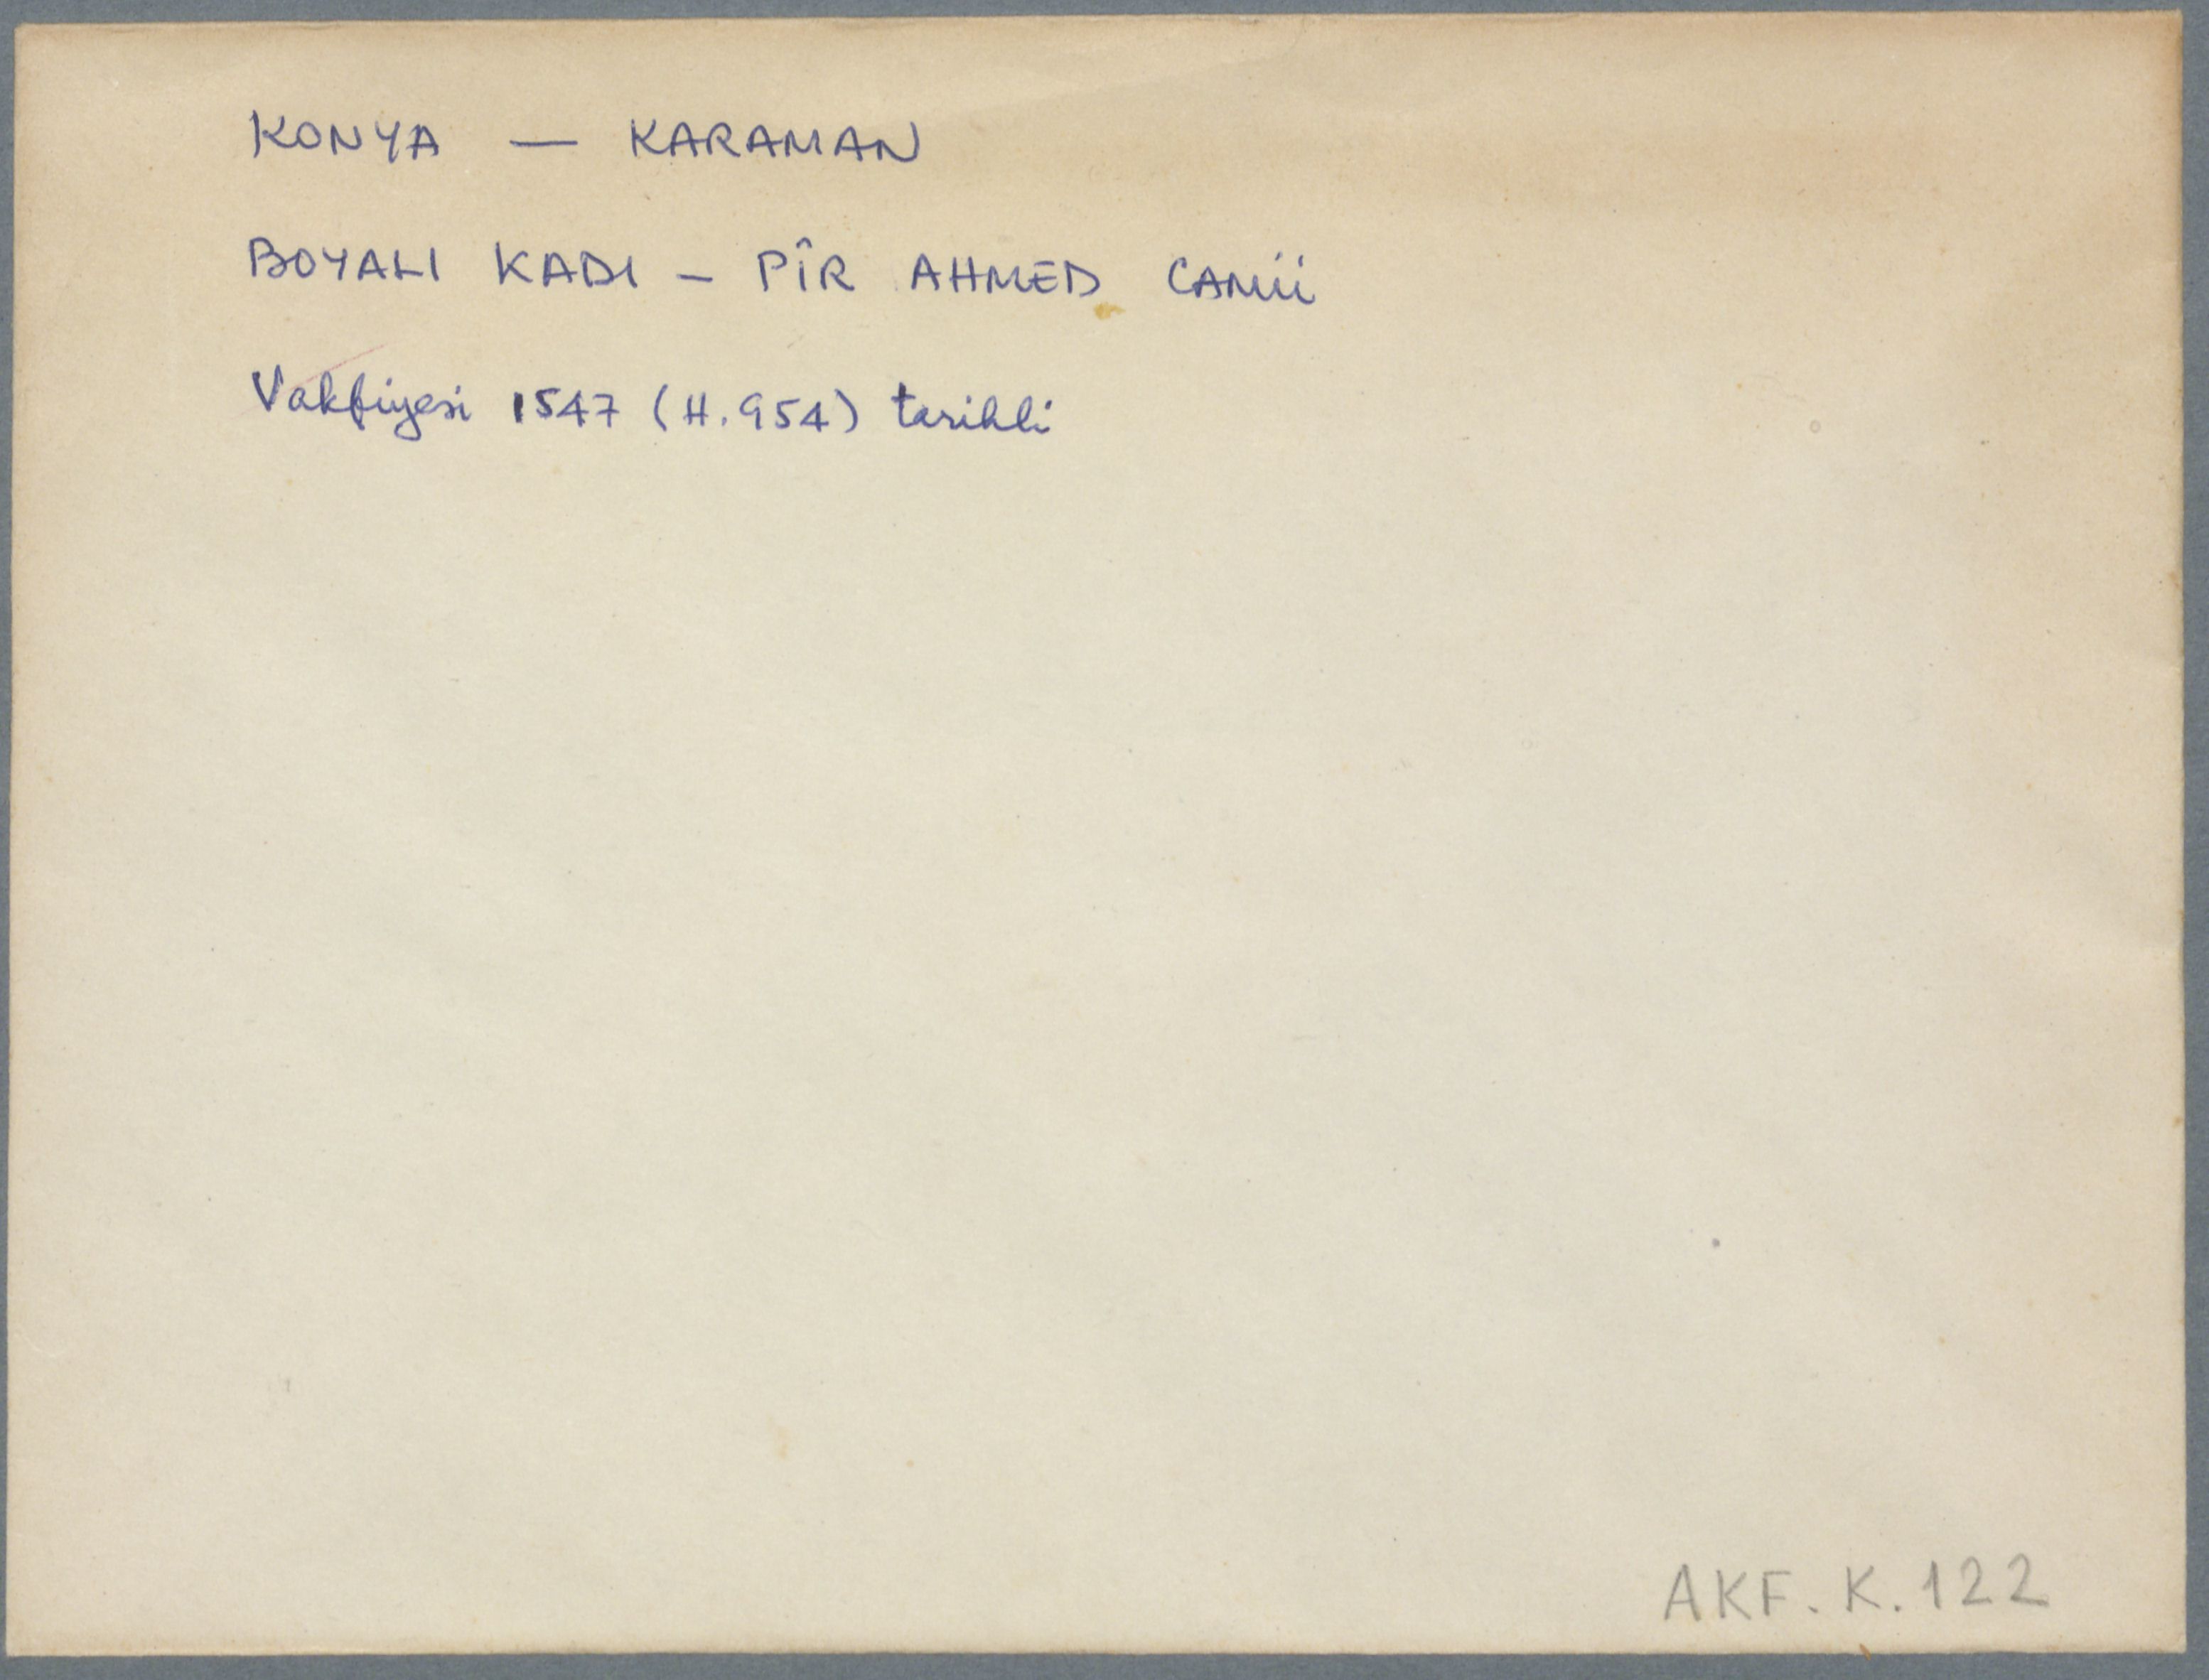 KONYA — KARAMAN
BOYALI KADI – PÎR AHMED CAMİİ
Vakfiyesi 1547 (H.954) tarihli
AKF. K. 122